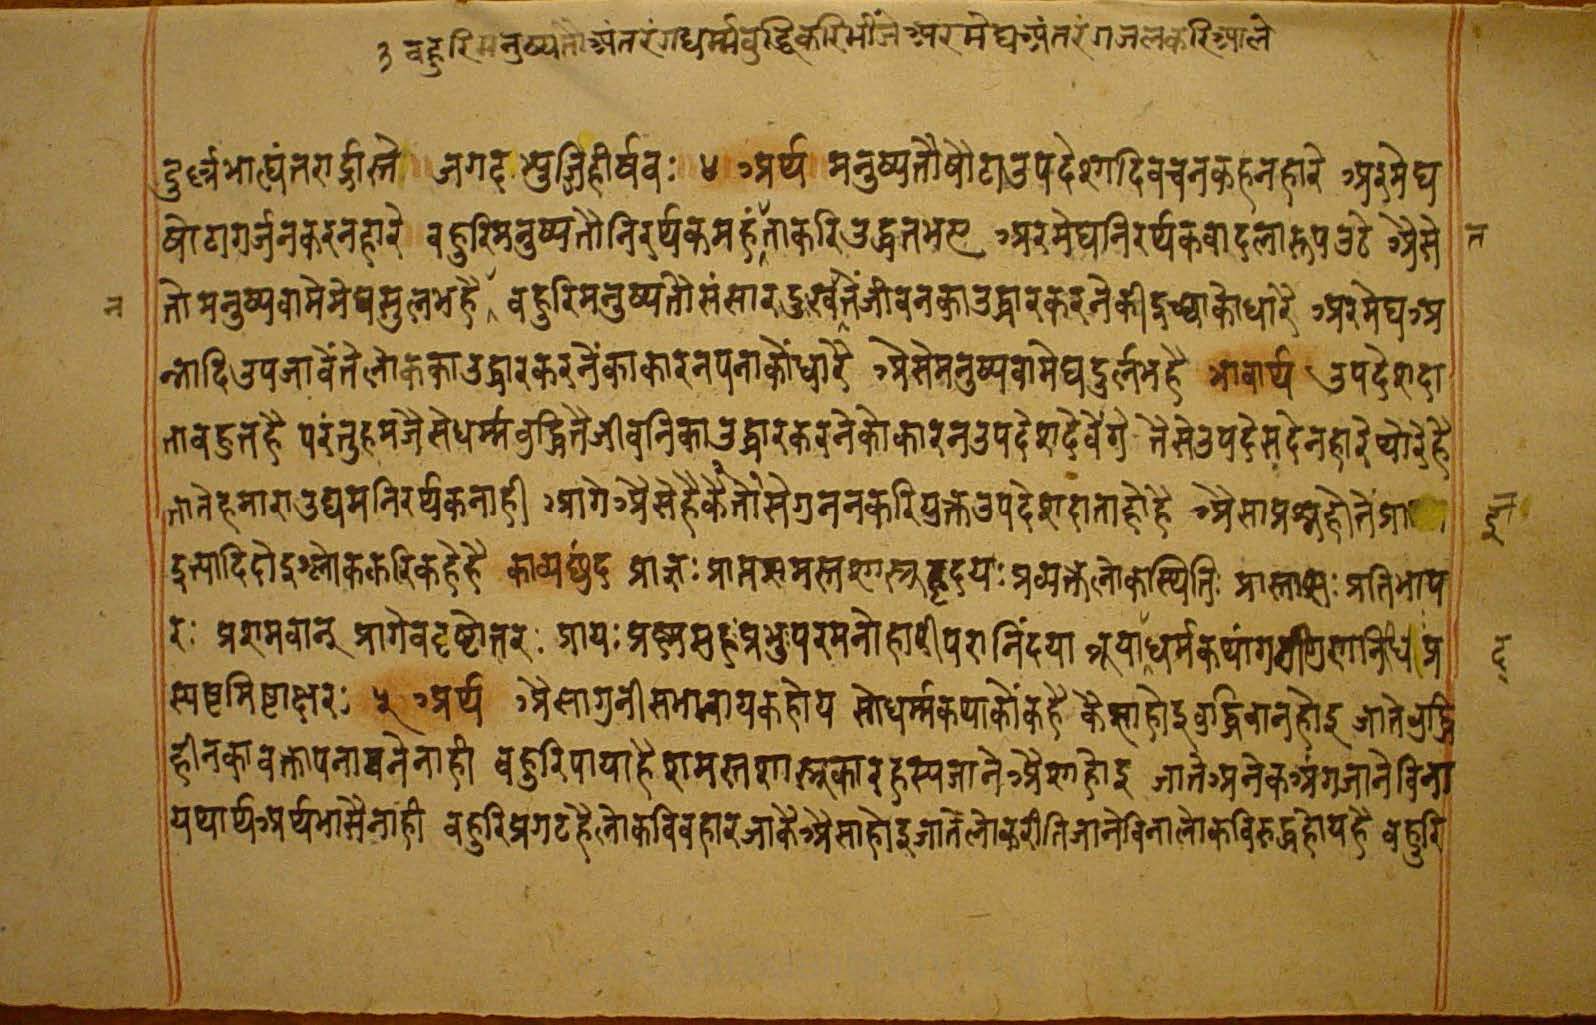 ३ बहुरिमनुष्यतौअंतरंगधर्म्मबुद्धिकरिभीजेअरमेघअंतरंगजलकरिआले
दुर्ल्लभाह्यंतरार्द्रास्ते जगदभ्युज्जिहीर्षवः ४ अर्थ मनुष्यतौषोटाउपदेशादिवचनकहनहारे अरमेघ
षोटागर्जनकरनहारे बहुरिमनुष्यतौनिरर्थकमहंताकरिउद्धतभए अरमेघनिरर्थकवादलारूपउठे अैसे
तौमनुष्यवामेमेघसुलभहै बहुरिमनुष्यतौसंसारदुखतेंजीवनकाउद्धारकरनेकीइच्छाकोधारै अरमेघअ
न्नादिउपजावेंतेलोककाउद्धारकरनेंकाकारनपनाकौंधारै अैसेमनुष्यवामेघदुर्लभहै भावार्थ उपदेशदा
ताबहुतहै परंतुहमजैसेधर्म्मबुद्धितैजीवनिकाउद्धारकरनेकोकारनउपदेशदेवेंगे तैसेउपदेसदेनहारेथोरेहै
तातेहमाराउद्यमनिरर्थकनाही आगेअैसेहैकैतौसेगुननकरियुक्तउपदेशदाताहोहै अैसाप्रश्नहोतें
इत्यादिदोइश्लोककरिकहेहै काव्यछंद प्राज्ञः प्राप्तसमस्तशास्त्रहृदयः प्रव्यक्तलोकस्थितिः प्रास्ताशः प्रतिभाप
रः प्रशमवान् प्रागेवदृष्टोत्तरः प्रायः प्रश्नसहः प्रभुः परमनोहारीपरानिंदया ब्रूयाधर्मकथांगणीगुणनिधिः प्र
स्पष्टमिष्टाक्षरः ५ अर्थ अैसागुनीसभानायकहोय सोधर्म्मकथाकौंकहै कैसाहोइबुद्धिवानहोइ जातेबुद्धि
हीनकावक्तापनाबनेनाही बहुरिपायाहैशमस्तशास्त्रकारहस्यजानेअैशाहोइ जातेअनेकअंगजानेविना
यथार्थअर्थभासैनाही बहुरिप्रगटहैलोकविवहारजाकैअैसाहोइजातेलोकरीतिजानेविनालोकविरुद्धहोयहै बहुरि